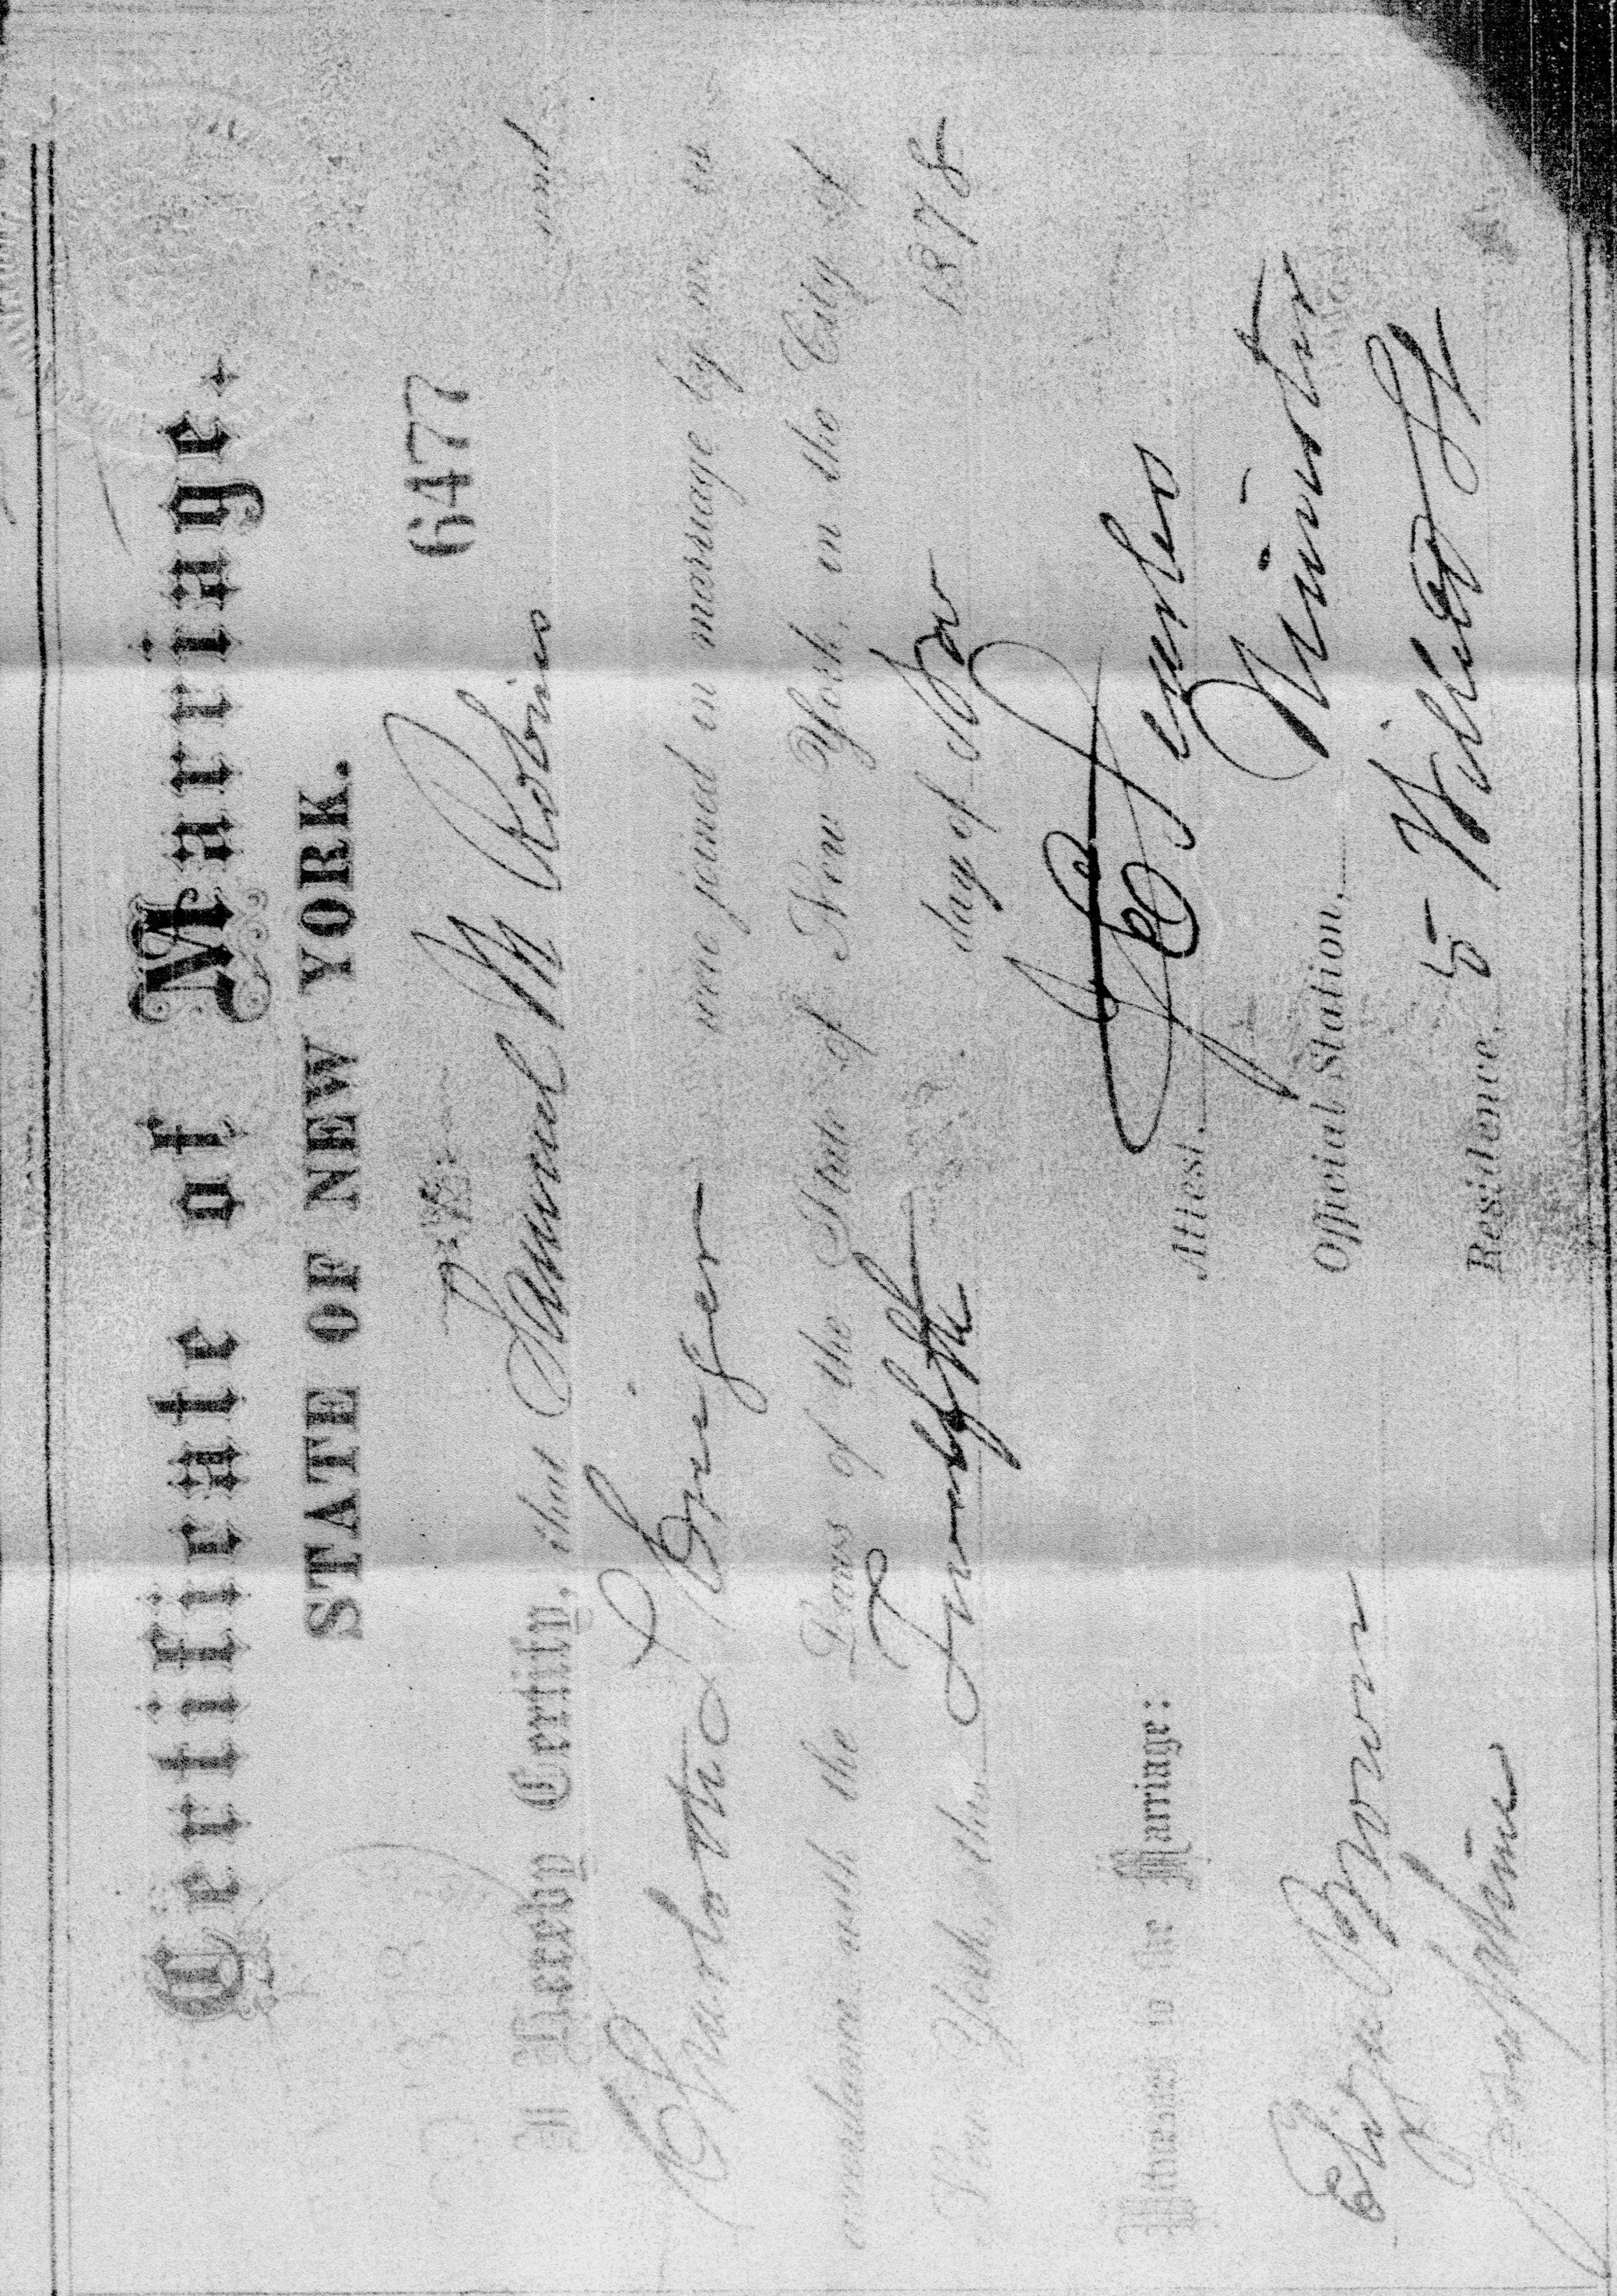 Certificate of Marriage.
STATE OF NEW YORK.
6477
I Hereby Certify, that Samuel M Robins and
Charlotte were joined in marriage by me in
accordance with the Laws of the State of New York, in the City of
New York, this day of Nov 1878
Witnesses to the Marriage:
Attest,
Official Station, Minister
Residence, 5 Willett St
Eliza Brown